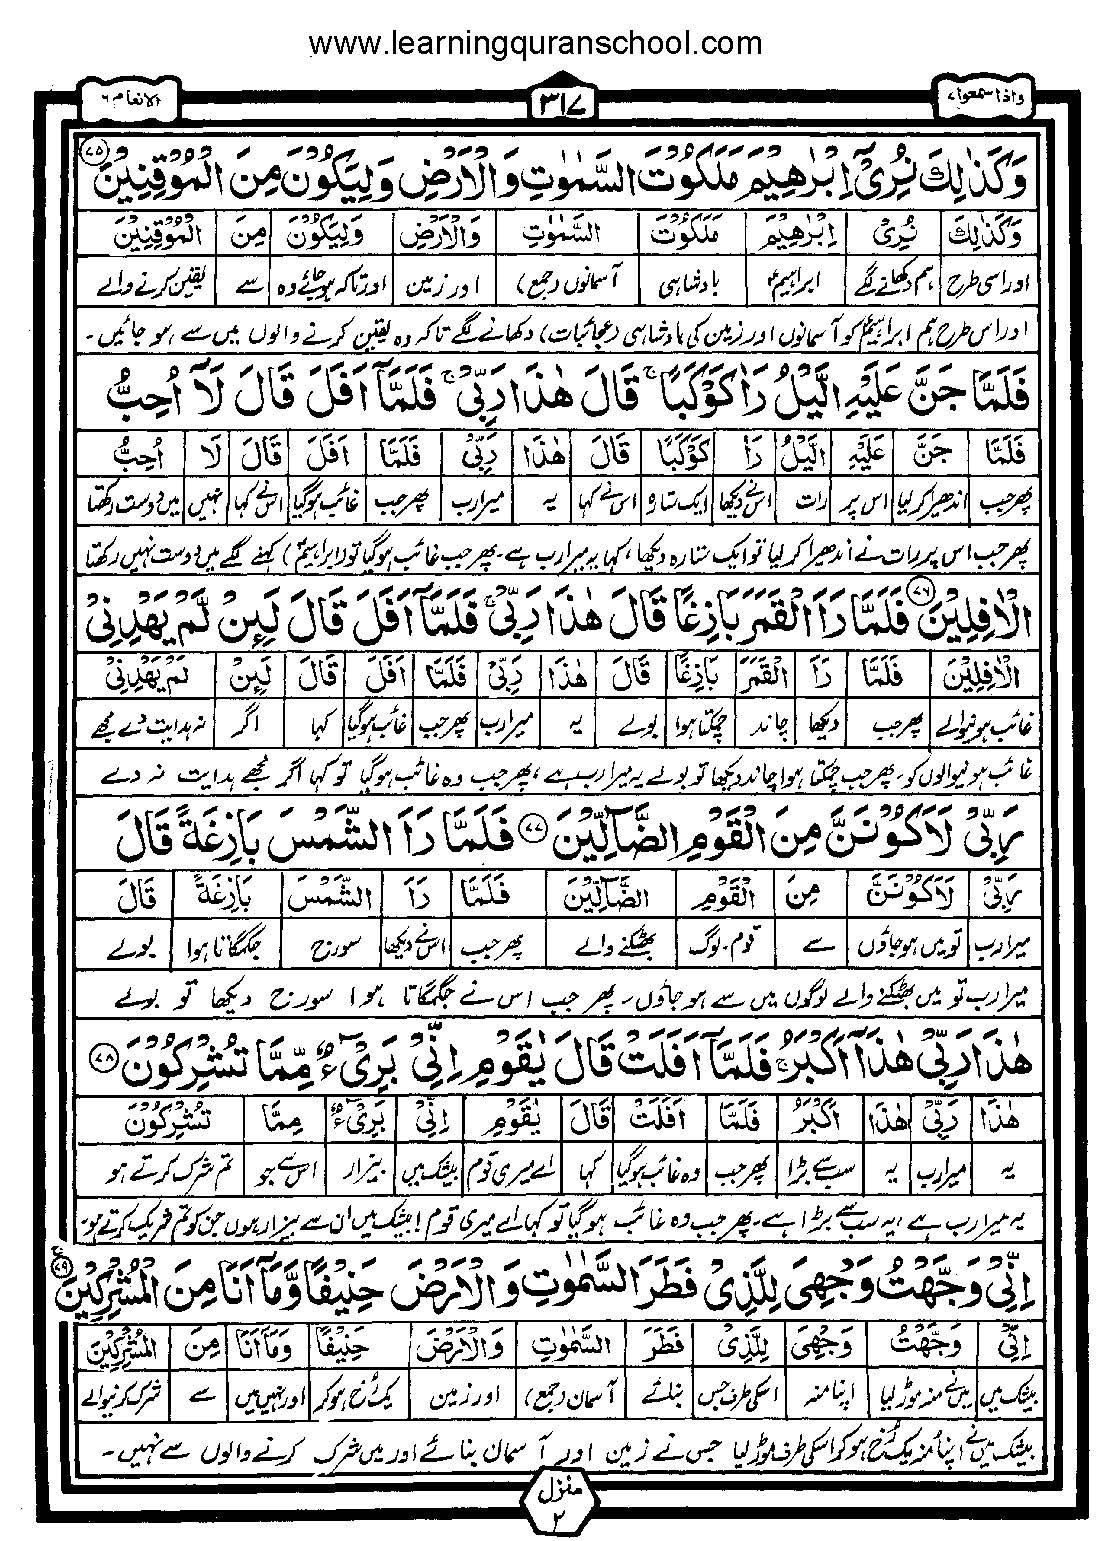 www.learningquranschool.com
واذا سمعوا ۷
۳۱۷
الانعام ۶
وَكَذٰلِكَ نُرِیْۤ اِبْرٰهِیْمَ مَلَكُوْتَ السَّمٰوٰتِ وَالْاَرْضِ وَلِیَكُوْنَ مِنَ الْمُوْقِنِیْنَ ۷۵
وَكَذٰلِكَ نُرِیْ اِبْرٰهِیْمَ مَلَكُوْتَ السَّمٰوٰتِ وَالْاَرْضِ وَلِیَكُوْنَ مِنَ الْمُوْقِنِیْنَ
اور اسی طرح ہم دکھانے لگے ابراہیمؑ بادشاہی آسمانوں (جمع) اور زمین اور تاکہ ہو جائے وہ سے یقین کرنے والے
اور اس طرح ہم ابراہیمؑ کو آسمانوں اور زمین کی بادشاہی (عجائبات) دکھانے لگے تاکہ وہ یقین کرنے والوں میں سے ہو جائیں۔
فَلَمَّا جَنَّ عَلَیْهِ الَّیْلُ رَاٰ كَوْكَبًا ۚ قَالَ هٰذَا رَبِّیْ ۚ فَلَمَّاۤ اَفَلَ قَالَ لَاۤ اُحِبُّ
فَلَمَّا جَنَّ عَلَیْهِ الَّیْلُ رَاٰ كَوْكَبًا قَالَ هٰذَا رَبِّیْ فَلَمَّا اَفَلَ قَالَ لَا اُحِبُّ
پھر جب اندھیرا کر لیا اس پر رات اس نے دیکھا ایک ستارہ اس نے کہا یہ میرا رب پھر جب غائب ہو گیا اس نے کہا نہیں میں دوست رکھتا
پھر جب اس پر رات نے اندھیرا کر لیا تو ایک ستارہ دیکھا، کہا یہ میرا رب ہے۔ پھر جب غائب ہو گیا تو (ابراہیمؑ) کہنے لگے میں دوست نہیں رکھتا
الْاٰفِلِیْنَ ۷۶ فَلَمَّا رَاَ الْقَمَرَ بَازِغًا قَالَ هٰذَا رَبِّیْ ۚ فَلَمَّاۤ اَفَلَ قَالَ لَىِٕنْ لَّمْ یَهْدِنِیْ
الْاٰفِلِیْنَ فَلَمَّا رَاَ الْقَمَرَ بَازِغًا قَالَ هٰذَا رَبِّیْ فَلَمَّا اَفَلَ قَالَ لَىِٕنْ لَمْ یَهْدِنِیْ
غائب ہونیوالے پھر جب دیکھا چاند چمکتا ہوا بولے یہ میرا رب پھر جب غائب ہو گیا کہا اگر نہ ہدایت دے مجھے
غائب ہونیوالوں کو۔ پھر جب چمکتا ہوا چاند دیکھا تو بولے یہ میرا رب ہے، پھر جب وہ غائب ہو گیا تو کہا اگر مجھے ہدایت نہ دے
رَبِّیْ لَاَكُوْنَنَّ مِنَ الْقَوْمِ الضَّآلِّیْنَ ۷۷ فَلَمَّا رَاَ الشَّمْسَ بَازِغَةً قَالَ
رَبِّیْ لَاَكُوْنَنَّ مِنَ الْقَوْمِ الضَّآلِّیْنَ فَلَمَّا رَاَ الشَّمْسَ بَازِغَةً قَالَ
میرا رب تو میں ہو جاؤں سے قوم۔لوگ بھٹکنے والے پھر جب اس نے دیکھا سورج جگمگاتا ہوا بولے
میرا رب تو میں بھٹکنے والے لوگوں میں سے ہو جاؤں۔ پھر جب اس نے جگمگاتا ہوا سورج دیکھا تو بولے
هٰذَا رَبِّیْ هٰذَاۤ اَكْبَرُ ۚ فَلَمَّاۤ اَفَلَتْ قَالَ یٰقَوْمِ اِنِّیْ بَرِیْٓءٌ مِّمَّا تُشْرِكُوْنَ ۷۸
هٰذَا رَبِّیْ هٰذَا اَكْبَرُ فَلَمَّا اَفَلَتْ قَالَ یٰقَوْمِ اِنِّیْ بَرِیْٓءٌ مِمَّا تُشْرِكُوْنَ
یہ میرا رب یہ سب سے بڑا پھر جب وہ غائب ہو گیا کہا اے میری قوم بیشک میں بیزار اس سے جو تم شرک کرتے ہو
یہ میرا رب ہے، یہ سب سے بڑا ہے۔ پھر جب وہ غائب ہو گیا تو کہا اے میری قوم! بیشک میں ان سے بیزار ہوں جن کو تم شریک کرتے ہو۔
اِنِّیْ وَجَّهْتُ وَجْهِیَ لِلَّذِیْ فَطَرَ السَّمٰوٰتِ وَالْاَرْضَ حَنِیْفًا وَّمَاۤ اَنَا مِنَ الْمُشْرِكِیْنَ ۷۹
اِنِّیْ وَجَّهْتُ وَجْهِیَ لِلَّذِیْ فَطَرَ السَّمٰوٰتِ وَالْاَرْضَ حَنِیْفًا وَمَا اَنَا مِنَ الْمُشْرِكِیْنَ
بیشک میں میں نے منہ موڑ لیا اپنا منہ اسکی طرف جس بنائے آسمان (جمع) اور زمین یک رُخ ہو کر اور نہیں میں سے شرک کرنیوالے
بیشک میں نے اپنا منہ یک رُخ ہو کر اسکی طرف موڑ لیا جس نے زمین اور آسمان بنائے اور میں شرک کرنے والوں سے نہیں۔
منزل
۲